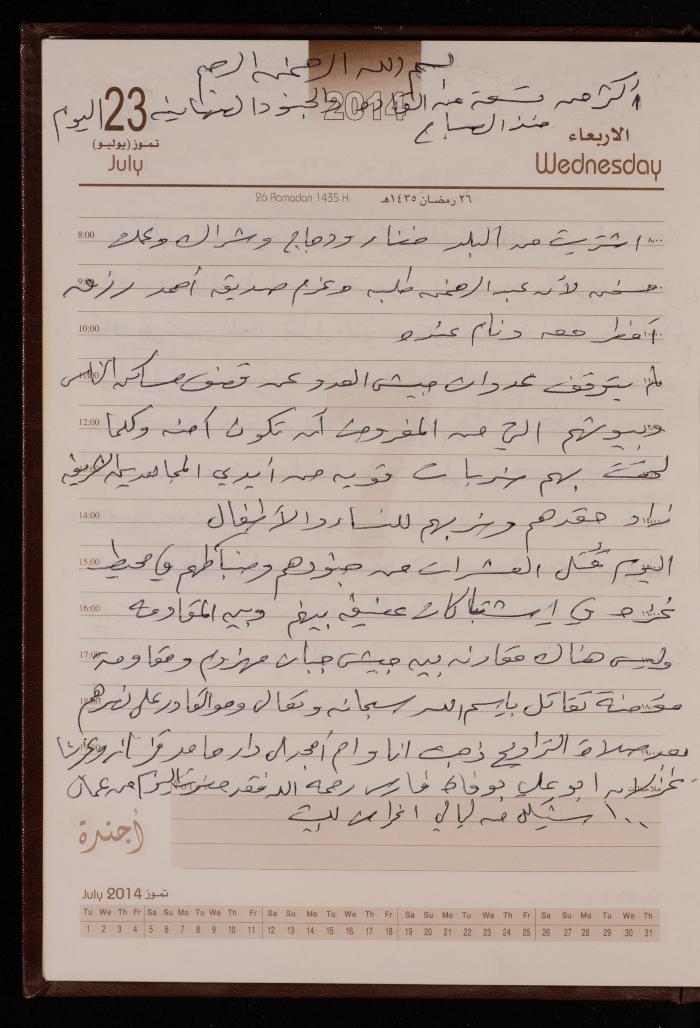 بسم الله الرحمن الرحيم
أكثر من تسعة من القادة والجنود الصهاينة اليوم
منذ الصباح
2014
23
تموز (يوليو)
July
الاربعاء
Wednesday
26 Ramadan 1435 H ٢٦ رمضان ١٤٣٥هـ
8:00 اشتريت من البلد خضار ودجاج وشراك وعملت
9:00 لأن عبد الرحمن طلبه وعزم صديقه أحمد
10:00 أفطر معه ونام عنده
11:00 لم يتوقف عدوان جيش العدو عن قصف مساكن الناس
12:00 وبيوتهم التي من المفروض أن تكون آمنه وكلما
لحقت بهم ضربات قويه من أيدي المجاهدين
14:00 زاد حقدهم وضربهم للنساء والأطفال
15:00 اليوم قُتل العشرات من جنودهم وضباطهم في محيط
16:00 غزة في اشتباكات عنيفه بينهم وبين المقاومه
17:00 وليس هناك مقارنه بين جيش جبان مهزوم ومقاومة
18:00 مؤمنة تقاتل باسم الله سبحانه وتعالى وهو القادر على نصرهم
بعد صلاة التراويح ذهبت انا وام أمجد الى دار حامد
لابن ابو علي بوفاة فارس رحمه الله فقد من عمان
١٠٠ شيكل من ليالي
أجندة
July 2014 تموز
Tu We Th Fr Sa Su Mo Tu We Th Fr Sa Su Mo Tu We Th Fr Sa Su Mo Tu We Th Fr Sa Su Mo Tu We Th
1 2 3 4 5 6 7 8 9 10 11 12 13 14 15 16 17 18 19 20 21 22 23 24 25 26 27 28 29 30 31